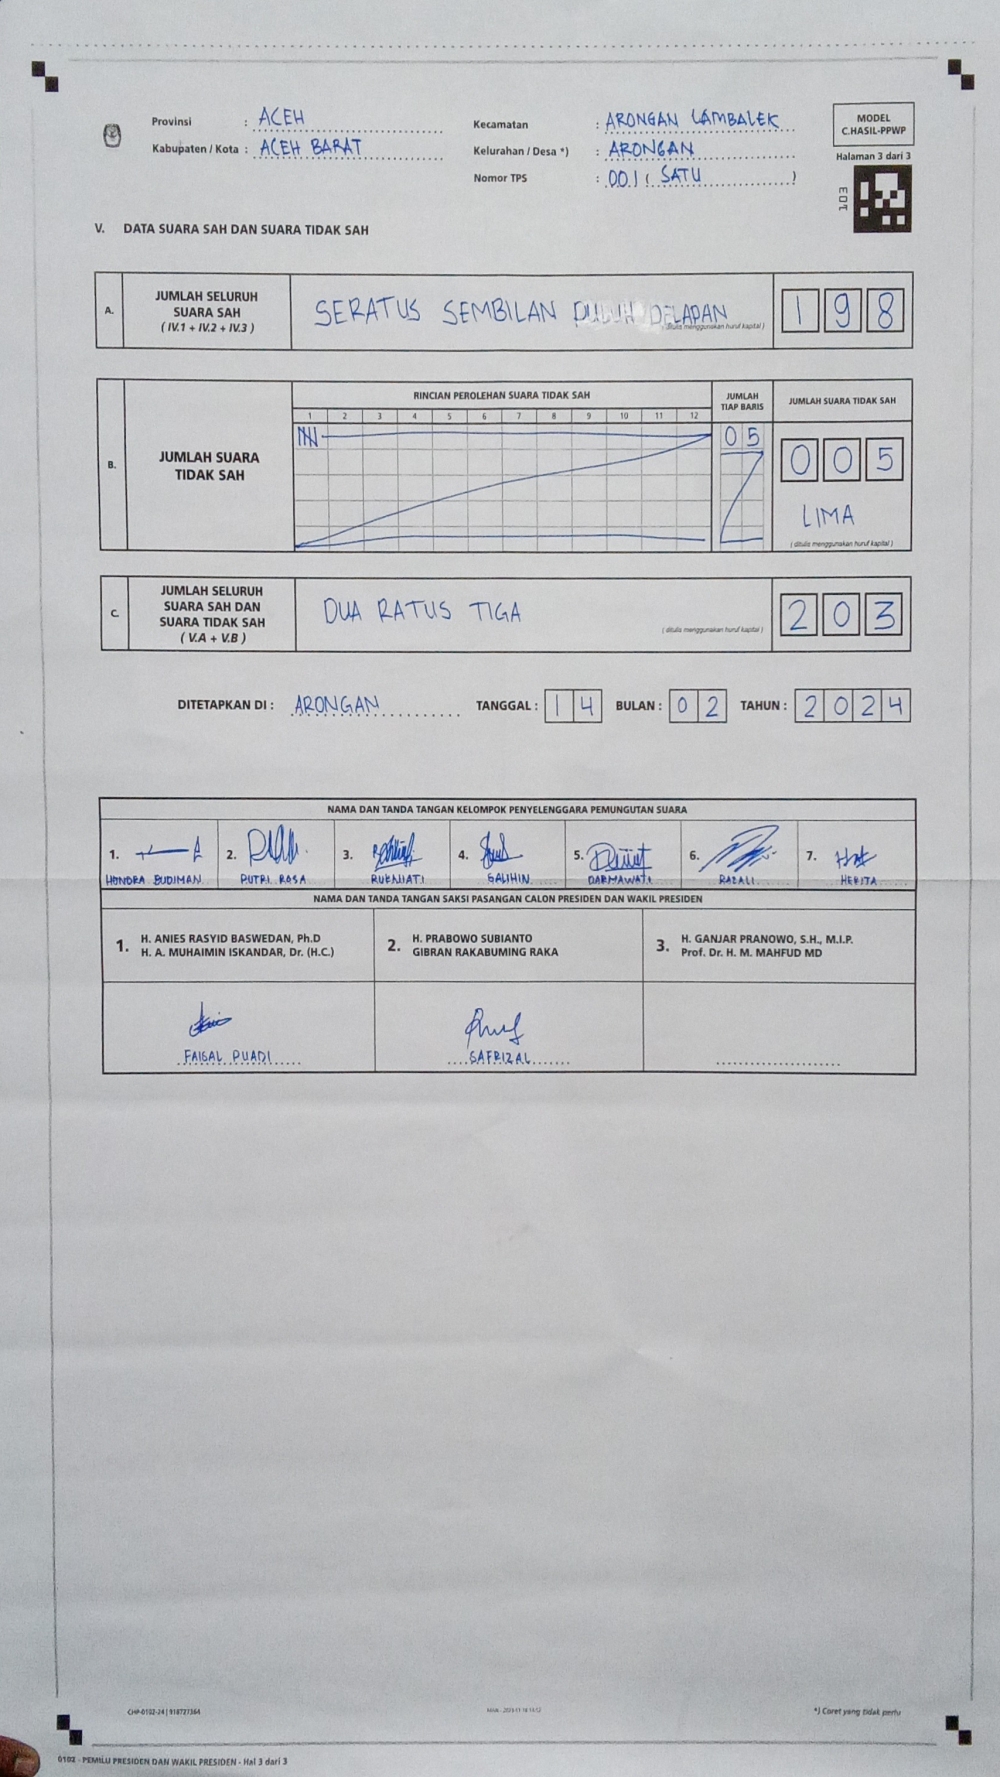 Provinsi : ACEH
Kabupaten / Kota : ACEH BARAT
Kecamatan : ARONGAN LAMBALEK
Kelurahan / Desa *) : ARONGAN
Nomor TPS : 001 ( SATU )
MODEL
C.HASIL-PPWP
Halaman 3 dari 3
103
V. DATA SUARA SAH DAN SUARA TIDAK SAH
A. JUMLAH SELURUH SUARA SAH ( IV.1 + IV.2 + IV.3 ) SERATUS SEMBILAN PULUH DELAPAN 1 9 8
( ditulis menggunakan huruf kapital )
RINCIAN PEROLEHAN SUARA TIDAK SAH JUMLAH TIAP BARIS JUMLAH SUARA TIDAK SAH
1 2 3 4 5 6 7 8 9 10 11 12
B. JUMLAH SUARA TIDAK SAH 0 5 0 0 5
LIMA
( ditulis menggunakan huruf kapital )
C. JUMLAH SELURUH SUARA SAH DAN SUARA TIDAK SAH ( V.A + V.B ) DUA RATUS TIGA 2 0 3
( ditulis menggunakan huruf kapital )
DITETAPKAN DI : ARONGAN TANGGAL : 1 4 BULAN : 0 2 TAHUN : 2 0 2 4
NAMA DAN TANDA TANGAN KELOMPOK PENYELENGGARA PEMUNGUTAN SUARA
1. 2. 3. 4. 5. 6. 7.
HENDRA BUDIMAN PUTRI ROSA RUKNIATI SALIHIN DARMAWATI RAZALI HERITA
NAMA DAN TANDA TANGAN SAKSI PASANGAN CALON PRESIDEN DAN WAKIL PRESIDEN
1. H. ANIES RASYID BASWEDAN, Ph.D
H. A. MUHAIMIN ISKANDAR, Dr. (H.C.)
2. H. PRABOWO SUBIANTO
GIBRAN RAKABUMING RAKA
3. H. GANJAR PRANOWO, S.H., M.I.P.
Prof. Dr. H. M. MAHFUD MD
FAISAL PUADI SAFRIZAL
CHP-0102-24 | 918727364
*) Coret yang tidak perlu
0102 - PEMILU PRESIDEN DAN WAKIL PRESIDEN - Hal 3 dari 3